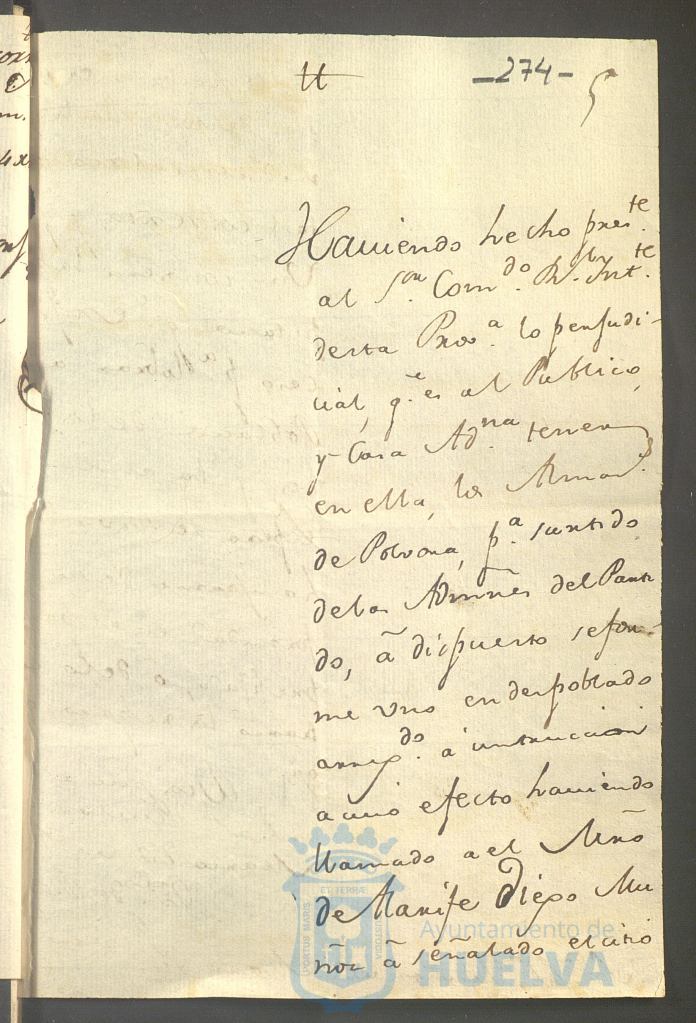 tt -274- 5
Haviendo hecho pres.te
al S.or Com.do R. Int.te
desta Prov.a lo perjudi-
cial, q.e es al Publico,
y Casa Ad.na tener
en ella, los Almaz.s
de Polvora, p.a surtido
de las Admnes del Parti
do, â dispuesto se for-
me uno en despoblado
arreg.do a instruccion
a cuio efecto haviendo
llamado a el Mrõ
de Alarife Diego Mu
ñoz â señalado el citio
ET TERRÆ
PORTUS MARIS
CUSTODIA
Ayuntamiento de
HUELVA